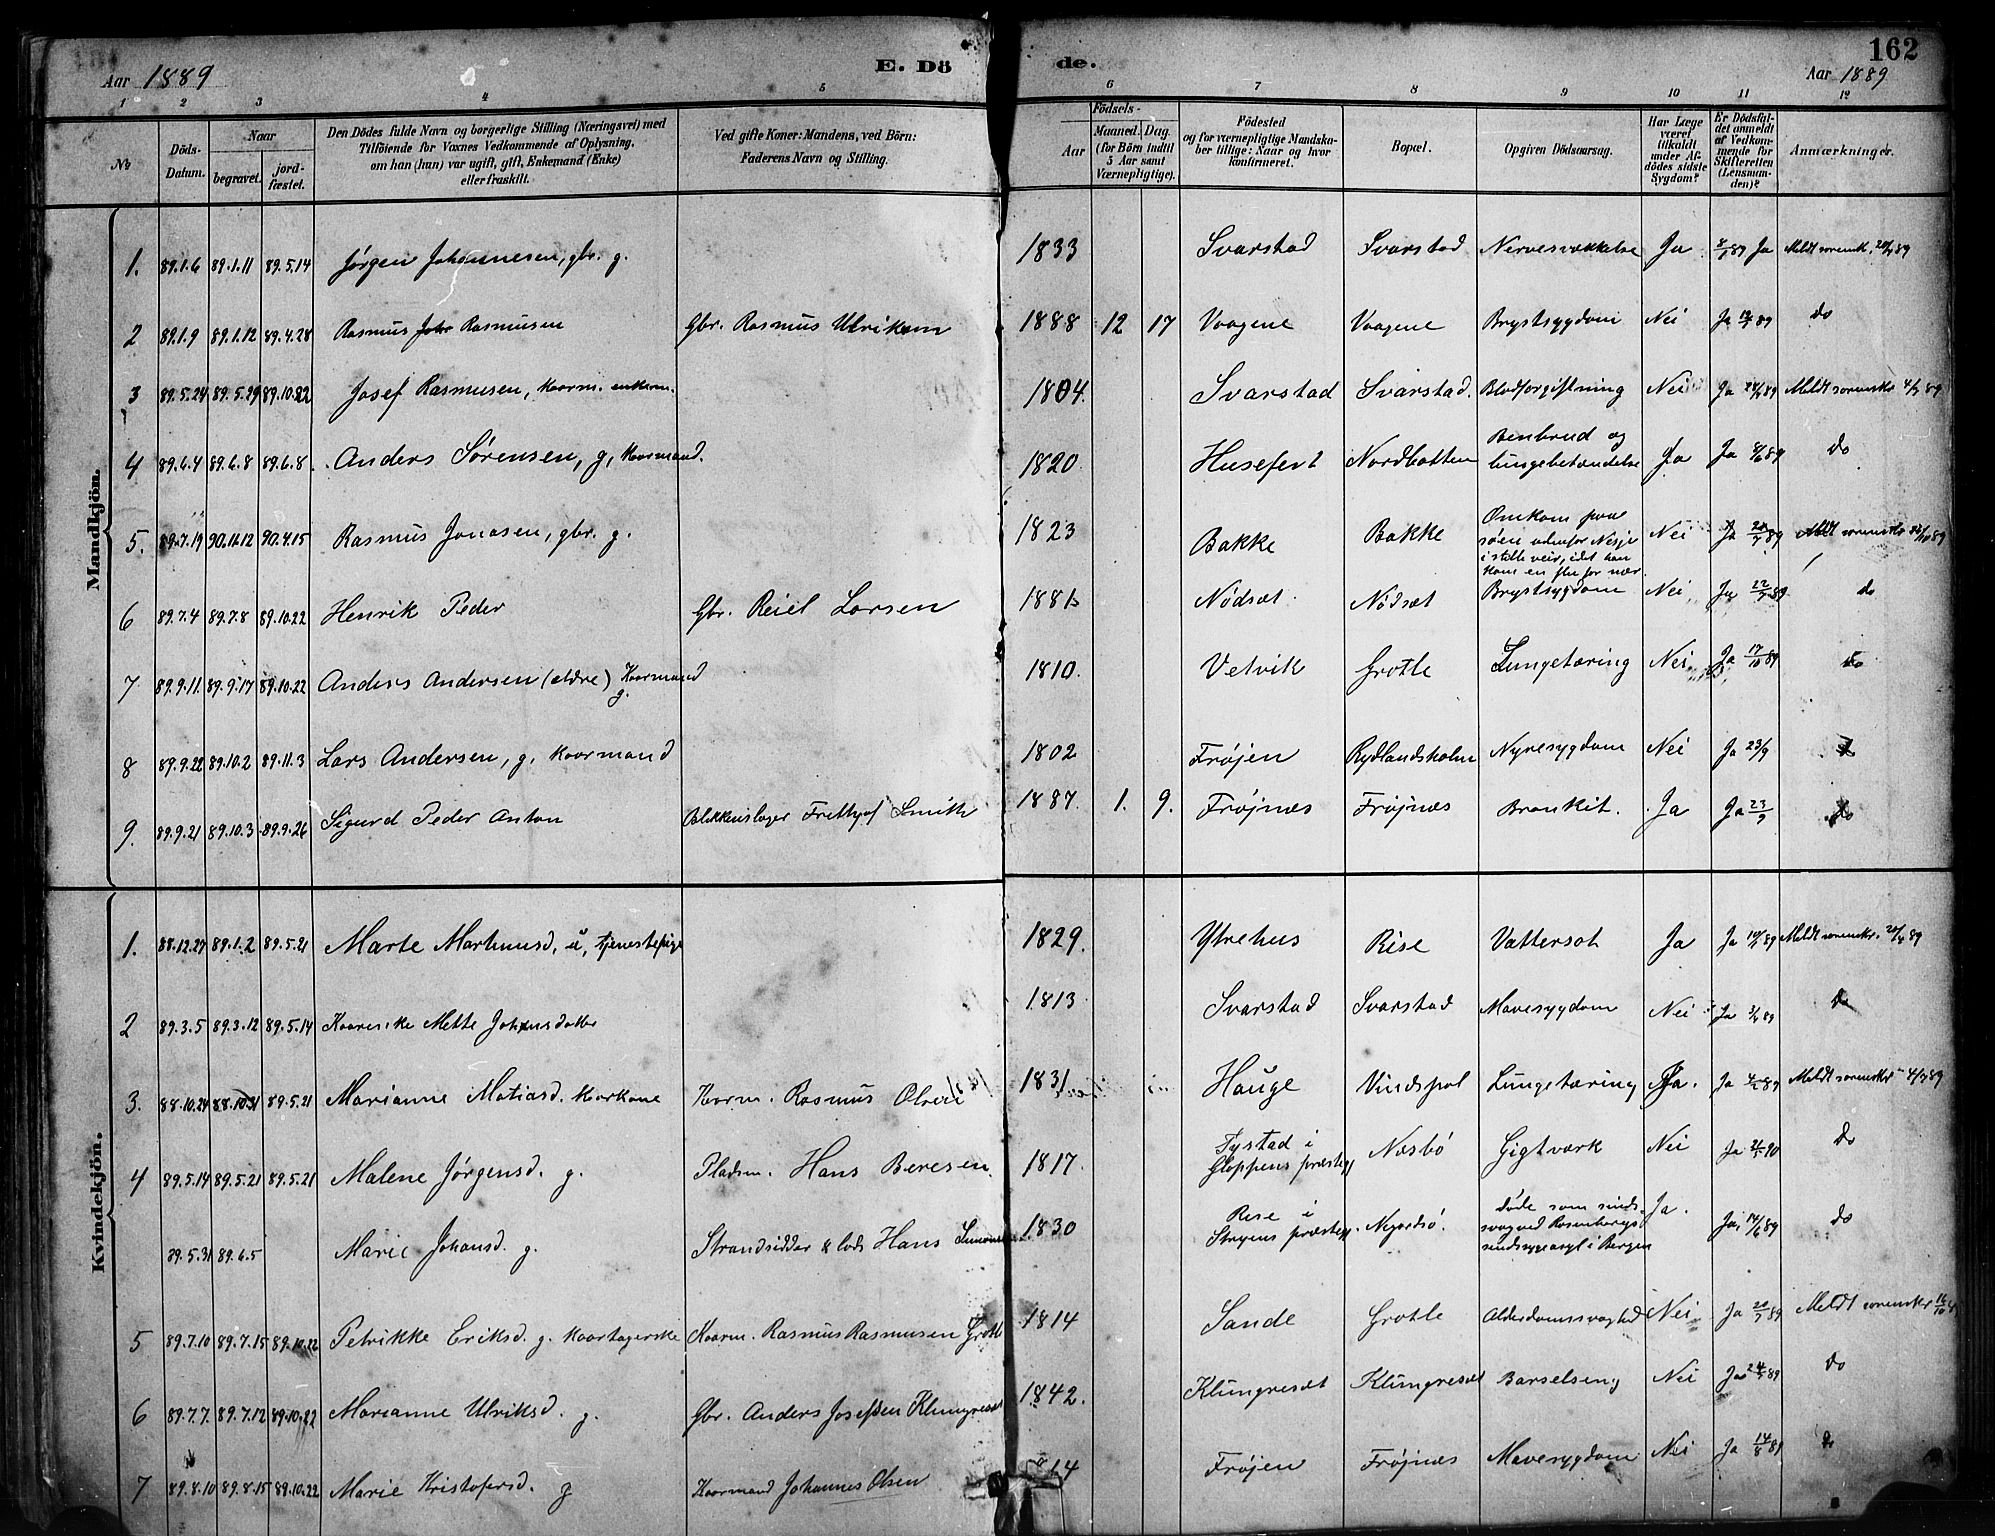 162
E. Dö de.
Aar 1889
Aar 1889
1 2 3 4 5 6 7 8 9 10 11 12
No
Döds-Datum.
Naar
begravet.
jordfæstet.
Den Dödes fulde Navn og borgerlige Stilling (Næringsvei) med
Tilföiende for Voxnes Vedkommende af Oplysning,
om han (hun) var ugift, gift, Enkemand (Enke)
eller fraskilt.
Ved gifte Koner: Mandens, ved Börn:
Faderens Navn og Stilling.
Födsels-
Aar
Maaned. Dag.
(for Börn indtil
5 Aar samt
Værnepligtige).
Födested
og for værnepligtige Mandskaber
tillige: Naar og hvor
konfirmeret.
Bopæl.
Opgiven Dödsaarsag.
Har Læge
været
tilkaldt
under Afdödes
sidste
Sygdom?
Er Dödsfaldet
anmeldt
af Vedkommende
for
Skifteretten
(Lensmanden)?
Anmærkninger.
Mandkjön.
1. 89.1.6 89.1.11 89.5.14 Jørgen Johannesen, gbr. g. 1833 Svarstad Svarstad Nervesvækkelse Ja 8/1 89 Ja Meldt sorenskr.
2 89.1.9 89.1.12 89.4.28 Rasmus Rasmusen Gbr. Rasmus Ulriksen 1888 12 17 Vaagene Vaagene Brystsygdom Nei Ja do
3 89.5.24 89.5.29 89.10.22 Josef Rasmusen, kaarm. enkem. 1804. Svarstad Svarstad. Blodforgiftning Nei Ja Meldt sorenskr
4 89.6.4 89.6.8 89.6.8. Anders Sørensen, g, kaarmand. 1820 Husefert Nordbotten Benbrud og lungebetændelse Ja Ja do
5. 89.7.19 90.4.15 Rasmus Jonasen, gbr. g. 1823 Bakke Bakke Omkom paa søen udenfor Nesje i stille veir, idet han kom en for nær Nei Ja Meldt sorenskr
6 89.7.4 89.7.8 89.10.22 Henrik Peder Gbr. Reiel Larsen 1881 Nødsæt Nødsæt Brystsygdom Nei Ja 22/7 89 do
7 89.9.11. 89.9.17 89.10.22 Anders Andersen (ældre) Kaarmand g. 1810. Vetvik Grotle Lungetæring Nei Ja 17/10 89 do
8 89.9.22 89.10.2 89.11.3 Lars Andersen, g, kaarmand 1802 Frøjen Rydlandsholm Nyresygdom Nei Ja 23/9
9. 89.9.21 89.10.3 89.9.26 Sigurd Peder Anton Blikkenslager Frithjof Smith 1887. 1. 9. Frøjnæs Frøjnæs Bronkit. Ja Ja 23/9 do
Kvindekjön.
1. 88.12.27 89.1.2 89.5.21 Marte Martinusd, u, tjenestepige 1829. Ytrehus Rise Vattersot Ja Ja Meldt sorenskr.
2 89.3.5 89.3.12 89.5.14 Mette Johansdatter 1813 Svarstad Svarstad Mavesygdom Nei Ja do
3. 88.10.24 88.10.31 89.5.21 Marianne Matiasd. kaarkone Kaarm. Rasmus Olsen 1831 Hauge Vindspol Lungetæring Ja. Ja Meldt sorenskr
4 89.5.14 89.5.21 89.5.21 Malene Jørgensd. g. Pladsm. Hans Beresen. 1817. i Gloppens præstegj Næsbö Gigtværk Nei Ja do
89.5.31 89.6.5 Marie Johansd. g. Strandsidder & lods Hans 1830 Rise i Stryens præstegj. døde som sindssvag ved Rosenbergs sindssygeasyl i Bergen Ja. Ja do
5 89.7.10 89.7.15 89.10.22 Petrikke Eriksd. g. kaartagerske Kaarm. Rasmus Rasmusen Grotle 1814 Sande Grotle Alderdomssvaghed Nei Ja Meldt sorenskr
6 89.7.7. 89.7.12 89.10.22 Marianne Ulriksd. g. Gbr. Anders Josefsen Klungresæt 1842. Klungresæt Klungresæt Barselseng Nei Ja do
7 89.8.10 89.8.15 89.10.22 Marie Kristofersd. g Kaarmand Johannes Olsen Frøjen Frøjnæs Mavesygdom Nei Ja 14/8 89 do